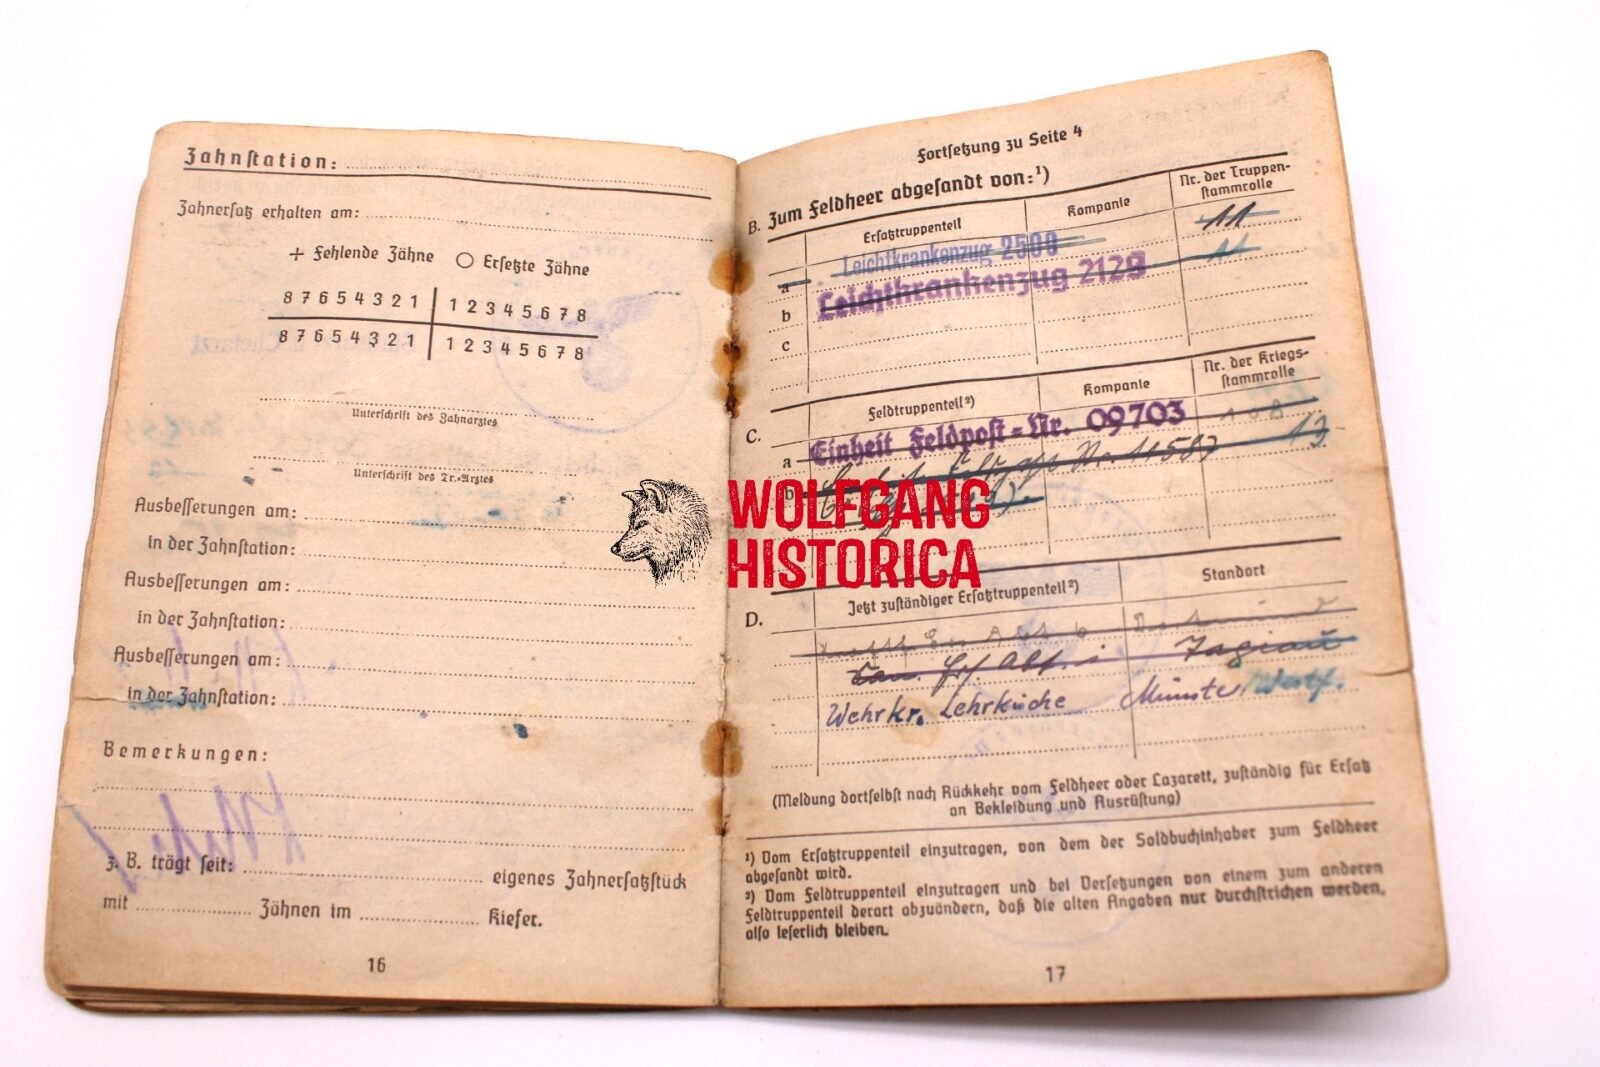 Zahnstation:
Zahnersatz erhalten am:
+ Fehlende Zähne ○ Ersetzte Zähne
8 7 6 5 4 3 2 1 | 1 2 3 4 5 6 7 8
8 7 6 5 4 3 2 1 | 1 2 3 4 5 6 7 8
Unterschrift des Zahnarztes
Unterschrift des Tr.-Arztes
Ausbesserungen am:
in der Zahnstation:
Ausbesserungen am:
in der Zahnstation:
Ausbesserungen am:
in der Zahnstation:
Bemerkungen:
z. B. trägt seit: eigenes Zahnersatzstück
mit Zähnen im Kiefer.
16
Fortsetzung zu Seite 4
B. Zum Feldheer abgesandt von:¹)
Ersatztruppenteil Kompanie Nr. der Truppen-
stammrolle
a Leichtkrankenzug 2500 11
b Leichtkrankenzug 2129 11
c
C. Feldtruppenteil²) Kompanie Nr. der Kriegs-
stammrolle
a Einheit Feldpost=Nr. 09703 108
b Nr. 11587 13
WOLFGANG
HISTORICA
D. Jetzt zuständiger Ersatztruppenteil²) Standort
Wehrkr. Lehrküche Münster Westf.
(Meldung dortselbst nach Rückkehr vom Feldheer oder Lazarett, zuständig für Ersatz
an Bekleidung und Ausrüstung)
¹) Vom Ersatztruppenteil einzutragen, von dem der Soldbuchinhaber zum Feldheer
abgesandt wird.
²) Vom Feldtruppenteil einzutragen und bei Versetzungen von einem zum anderen
Feldtruppenteil derart abzuändern, daß die alten Angaben nur durchstrichen werden,
also leserlich bleiben.
17